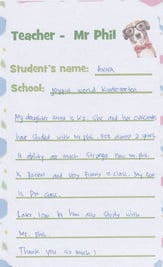 Teacher - Mr Phil
Student's name: ANNA
School: Joyful world Kindergarten
My daughter Anna is 4.5. She and her
has studied with Mr. phil. For almost 2 years
It ability so much stronge now. Mr. phil
is patient and very funny in class. My son
is in class.
Later I on to him also study with
Mr. Phil.
Thank you so much!